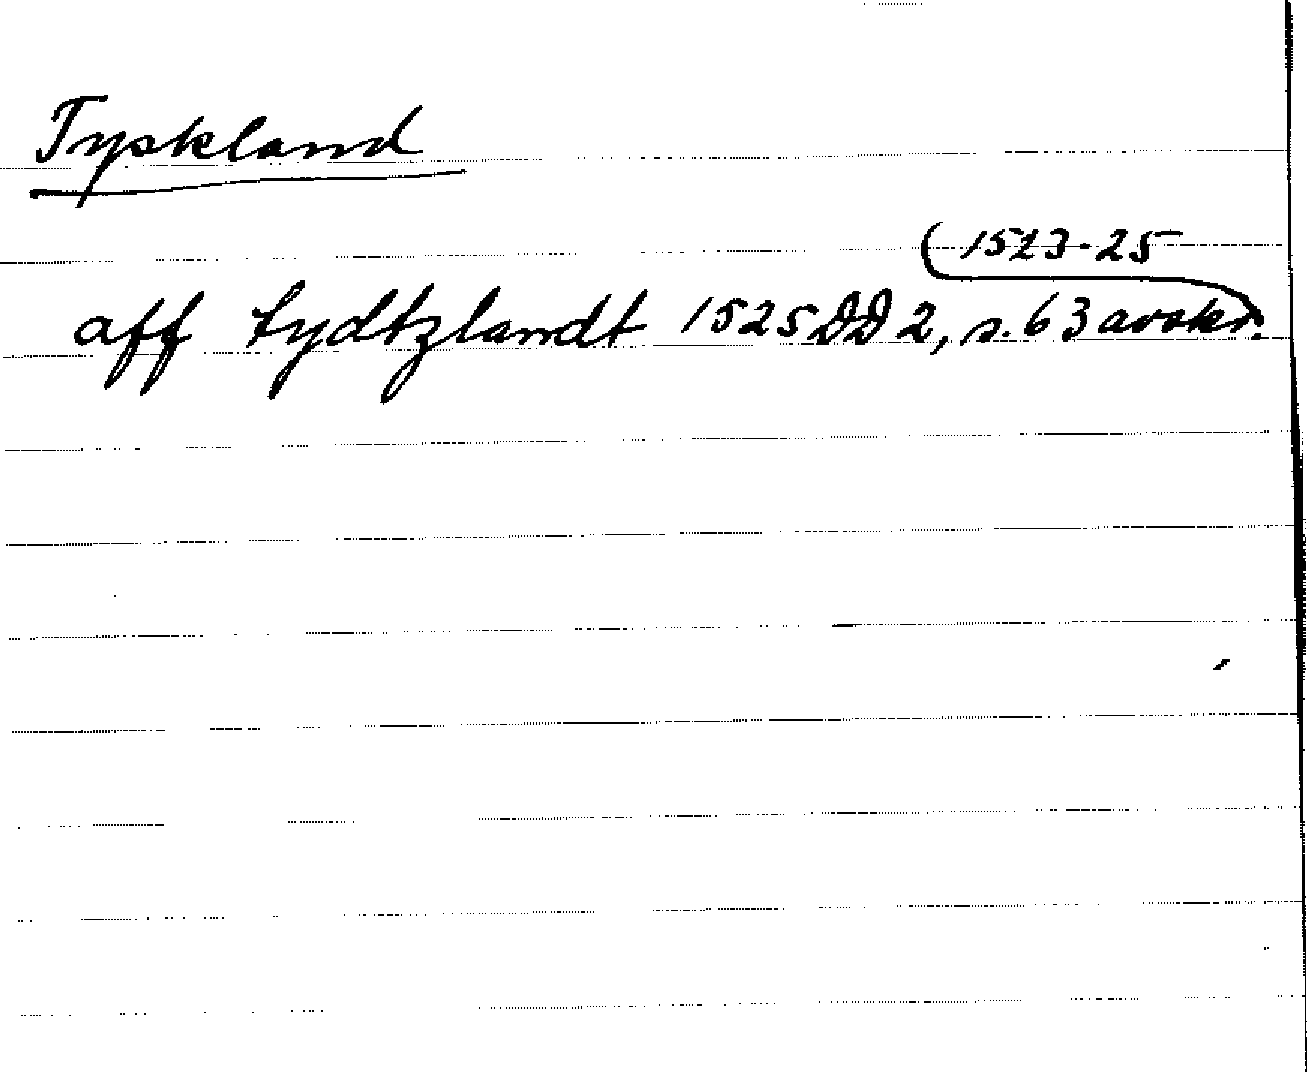 Tyskland
aff tydtzlandt 1525 DD 2, s. 63 avskr.
1523-25